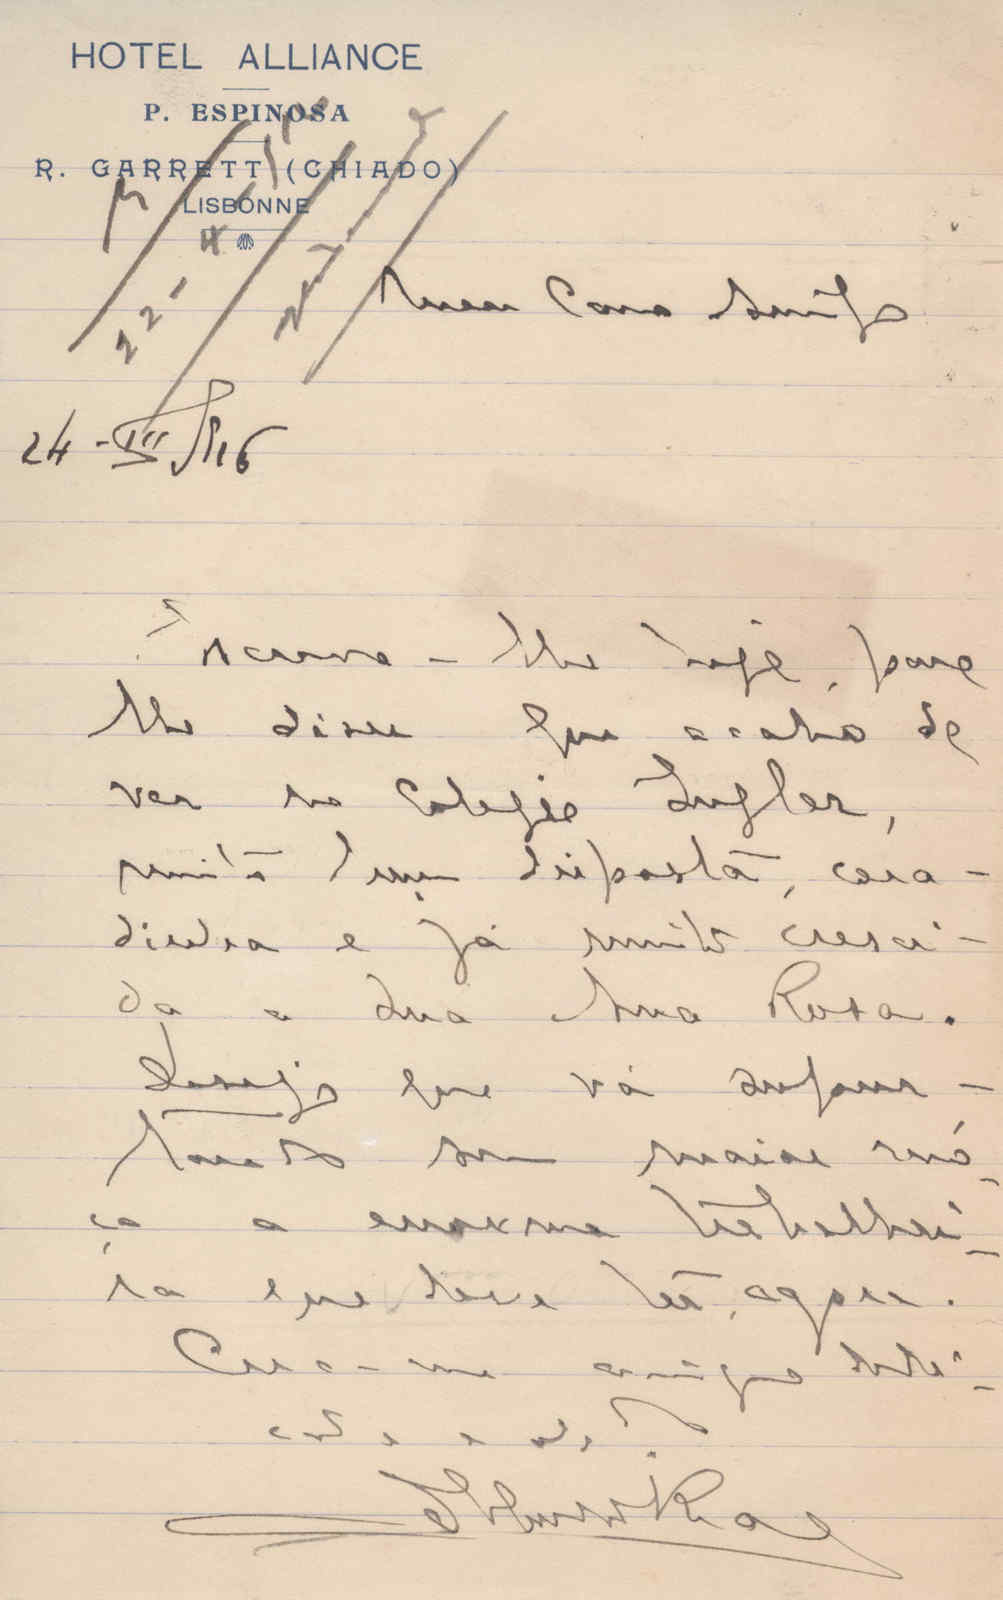 HOTEL ALLIANCE
P. ESPINOSA
R. GARRETT (CHIADO)
LISBONNE
22-4
Meu Caro Amigo
24-III-916
Escrevo-lhe hoje, para
lhe dizer que acabo de
ver no Colegio Inglez,
muito bem disposta, cora-
dinha e já muito cresci-
da a sua Ana Rosa.
Desejo que vá supor-
tando sem maior mó-
ça a enorme trabalhei-
ra que deve ter, agora.
Creia-me amigo dedi-
cado e